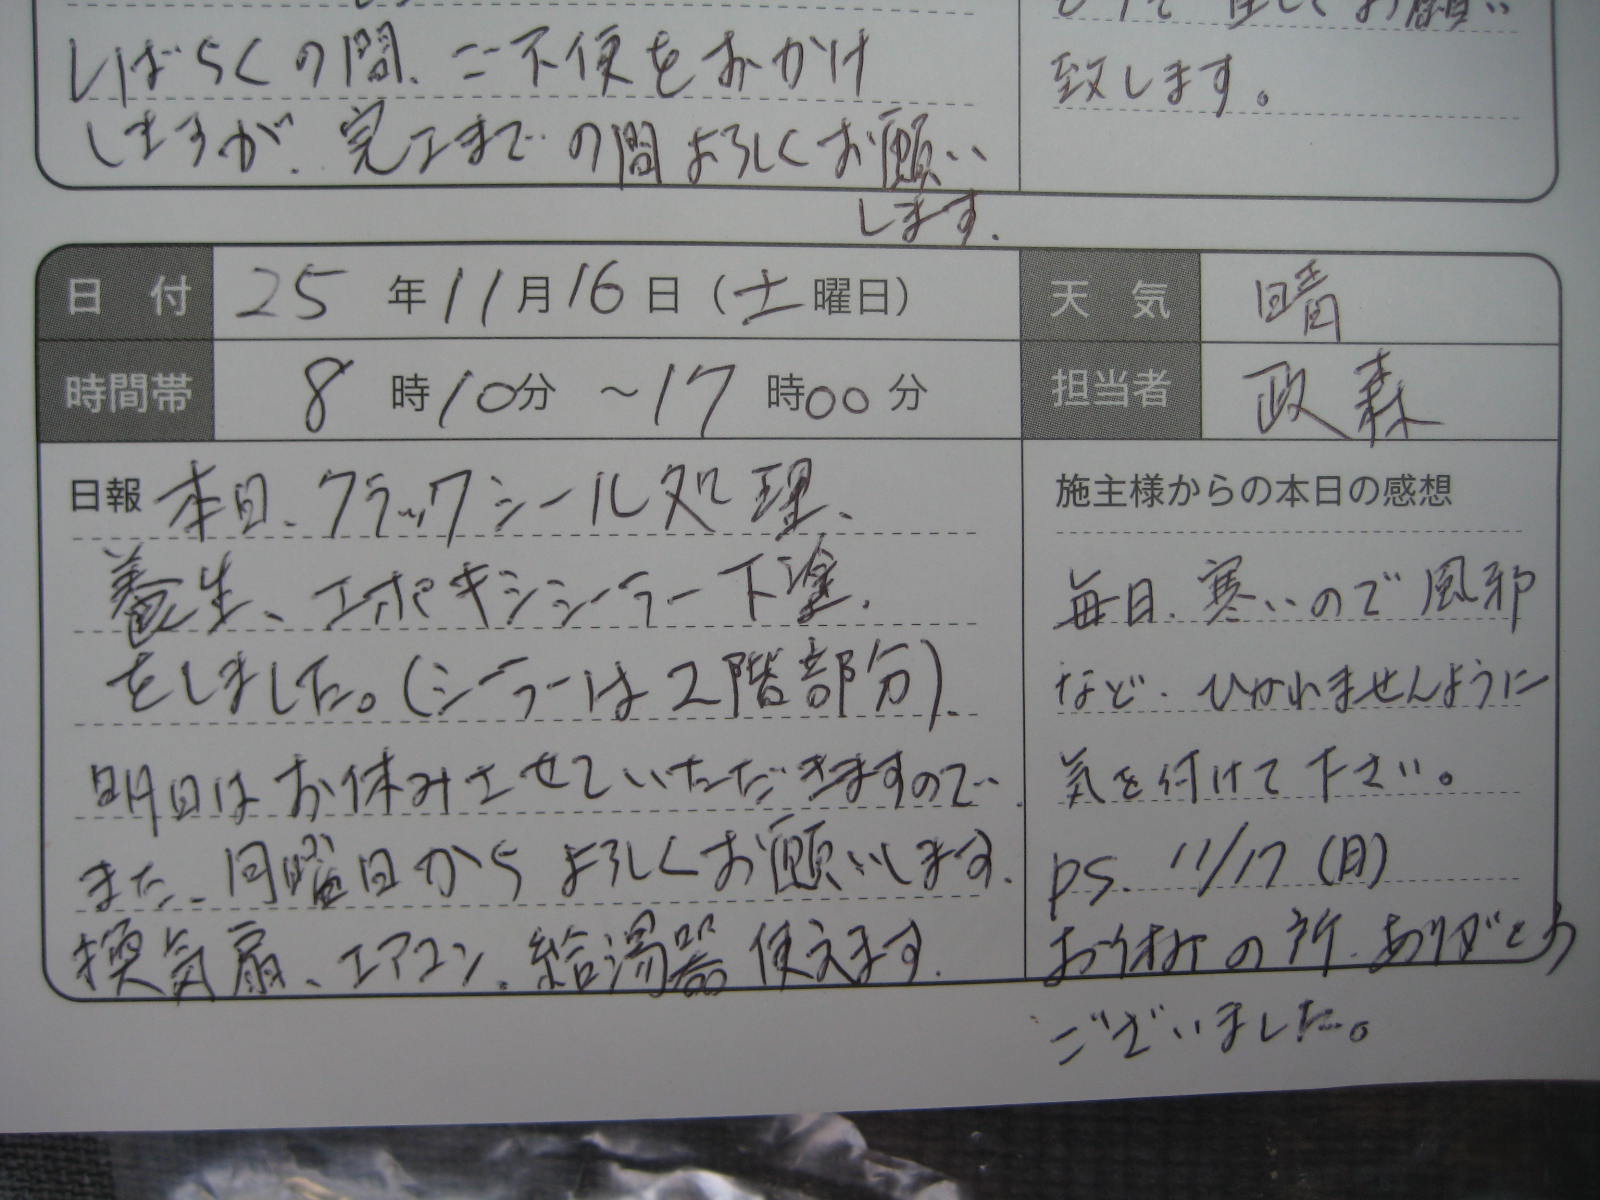 しばらくの間、ご不便をおかけ
しますが、完工までの間よろしくお願い
します。
致します。
日付 25年11月16日(土曜日)
天気 晴
時間帯 8時10分～17時00分
担当者 政森
日報 本日、クラックシール処理、
養生、エポキシシーラー下塗、
をしました。(シーラーは2階部分)、
明日はお休みさせていただきますので、
また、月曜日からよろしくお願いします。
換気扇、エアコン、給湯器使えます。
施主様からの本日の感想
毎日、寒いので風邪
など、ひかれませんように
気を付けて下さい。
PS. 11/17(日)
お休みの所、ありがとう
ございました。